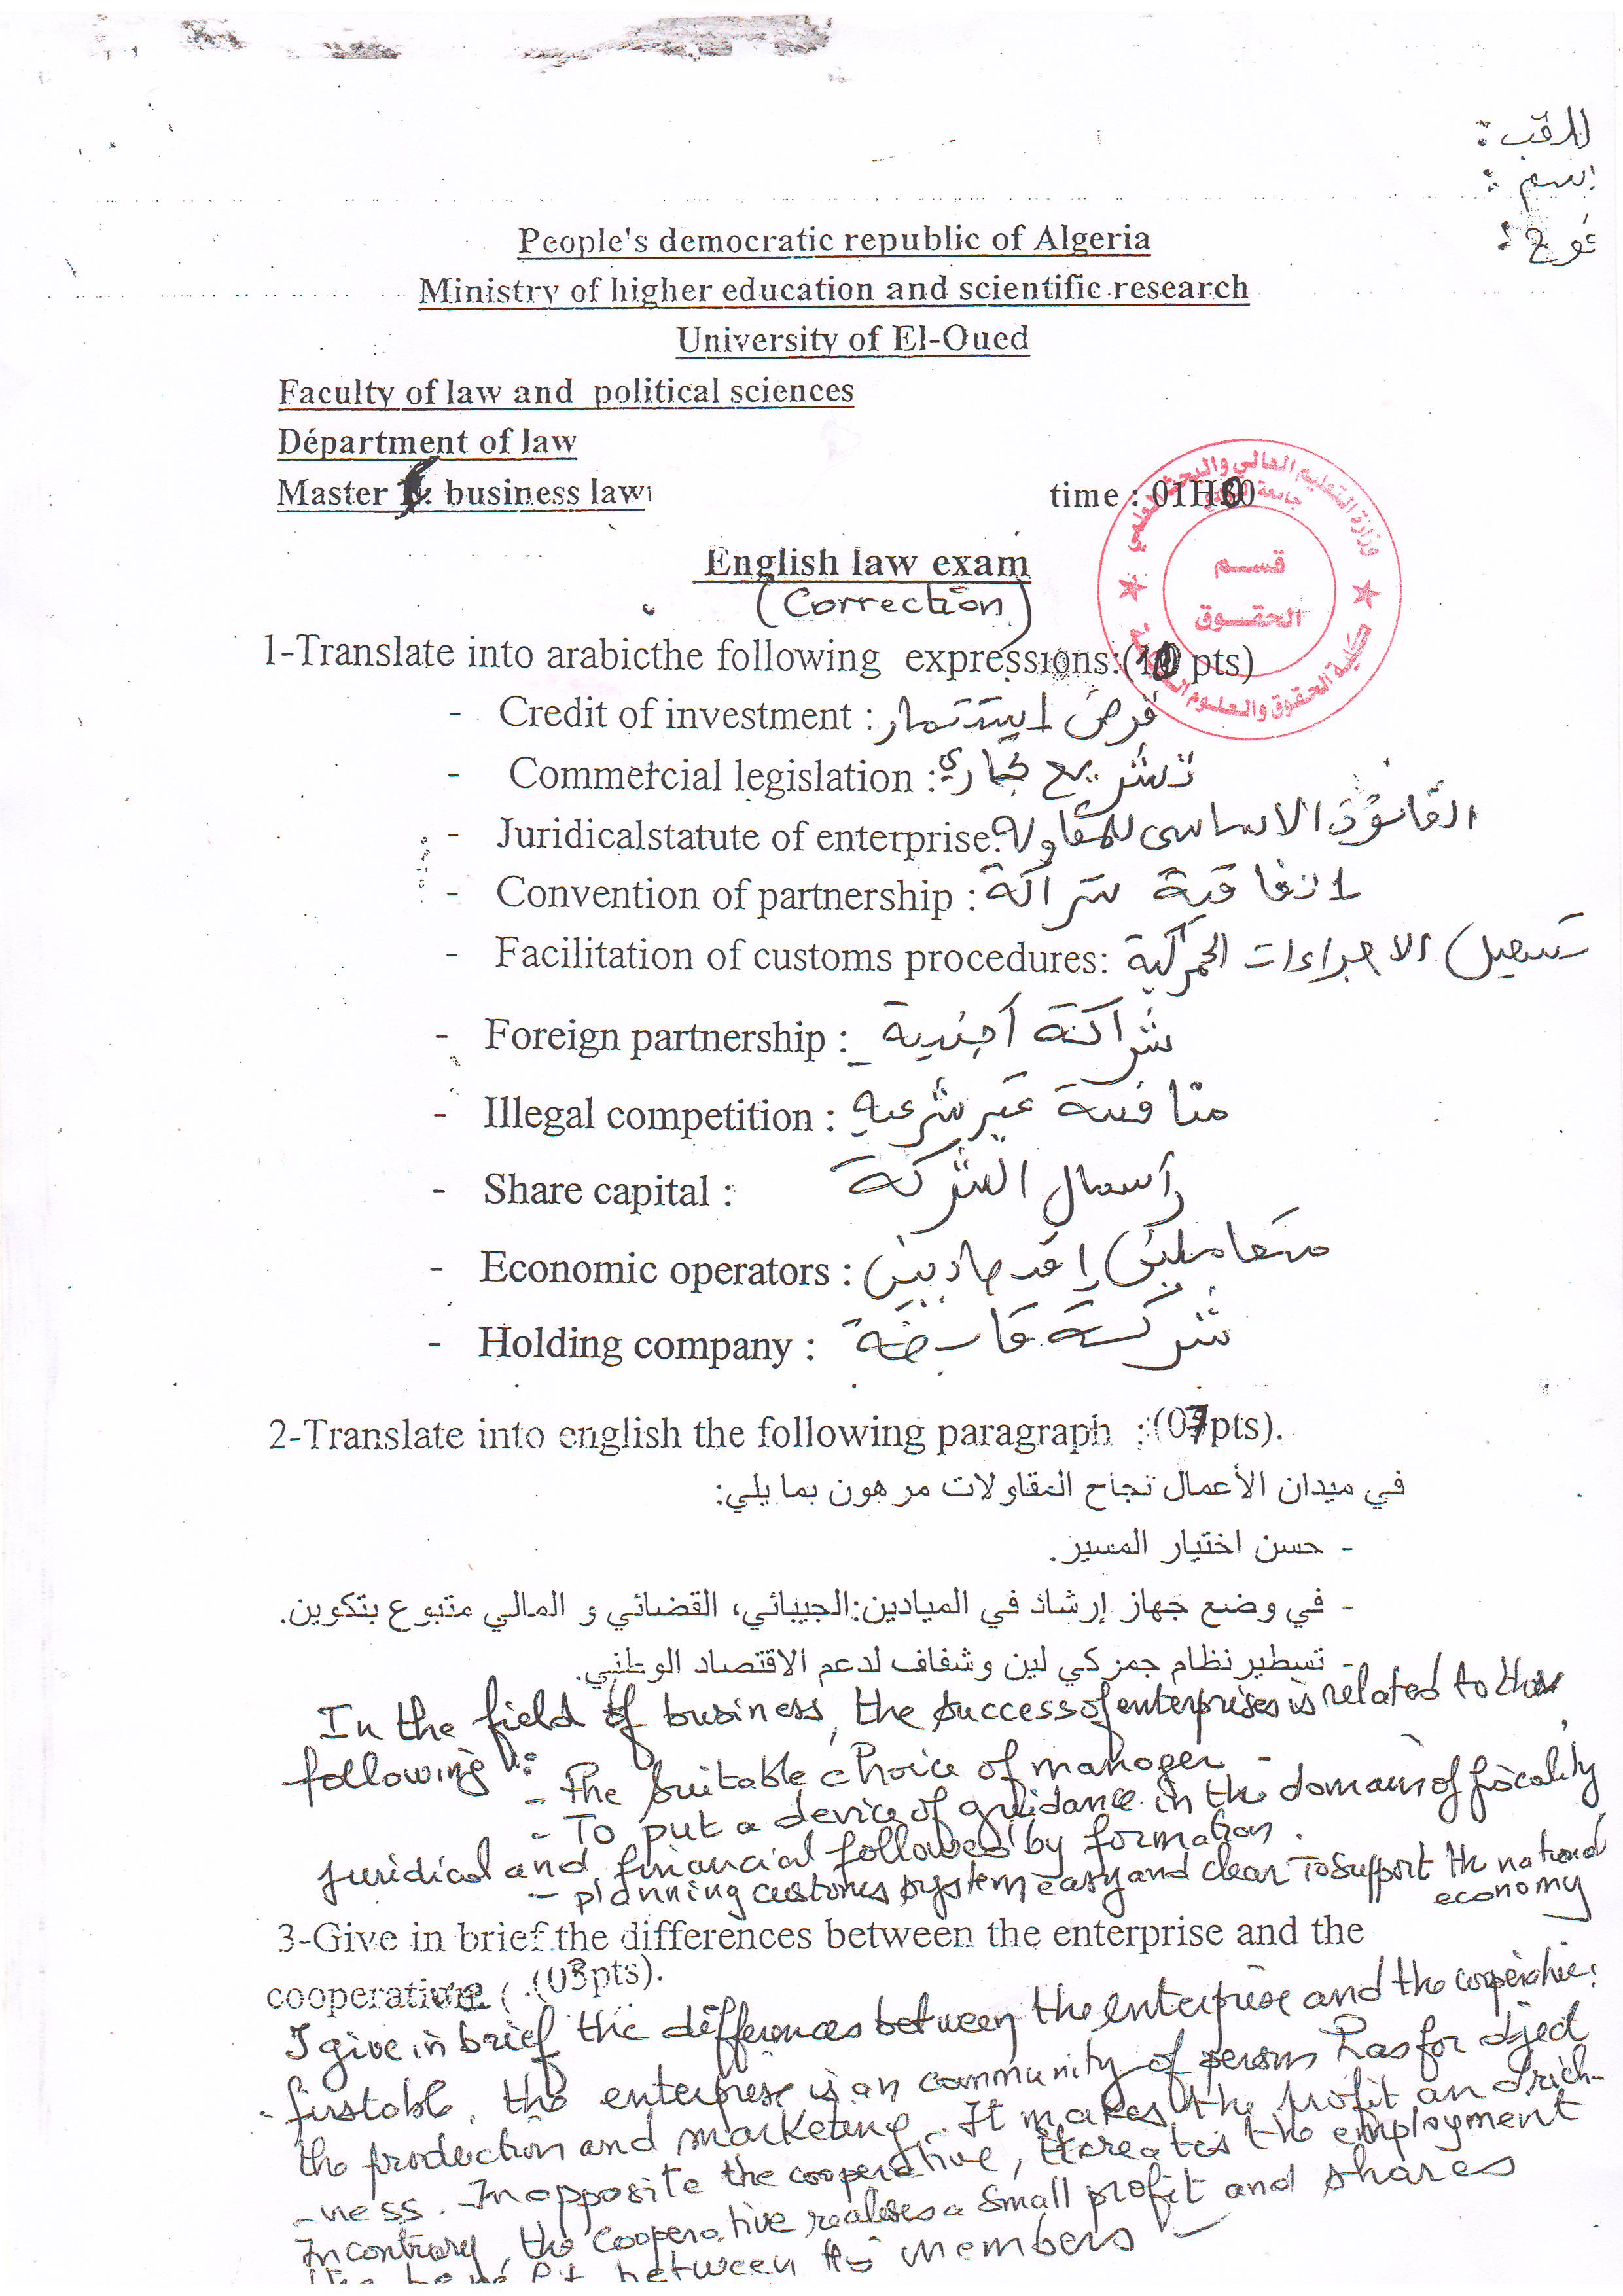 للقب :
اسم :
فوج :
People's democratic republic of Algeria
Ministry of higher education and scientific research
University of El-Oued
Faculty of law and political sciences
Départment of law
Master : business law
time : 01H00
وزارة التعليم العالي والبحث العلمي
جامعة
قسم
الحقوق
كلية الحقوق والعلوم
English law exam
(Correction)
1-Translate into arabicthe following expressions:(10 pts)
- Credit of investment : قرض إستثمار
- Commercial legislation : تشريع تجاري
- Juridicalstatute of enterprise: القانون الاساسي للمقاولة
- Convention of partnership : إتفاقية شراكة
- Facilitation of customs procedures: تسهيل الاجراءات الجمركية
- Foreign partnership : شراكة أجنبية
- Illegal competition : منافسة غير شرعية
- Share capital : رأسمال الشركة
- Economic operators : متعاملين إقتصاديين
- Holding company : شركة قابضة
2-Translate into english the following paragraph :(07pts).
في ميدان الأعمال نجاح المقاولات مرهون بما يلي:
- حسن اختيار المسير.
- في وضع جهاز إرشاد في الميادين:الجيبائي، القضائي و المالي متبوع بتكوين.
- تسطير نظام جمركي لين وشفاف لدعم الاقتصاد الوطني.
In the field of business, the success of enterprises is related to the
following :
- The suitable choice of manager -
- To put a device of guidance in the domains of fiscality
juridical and financial followed by formation.
- planning customs system easy and clear to support the national
economy
3-Give in brief the differences between the enterprise and the
cooperative (03pts).
I give in brief the differences between the enterprise and the cooperative:
- firstable, the enterprise is an community of persons has for object
the production and marketing. It makes the profit and rich-
-ness. In opposite the cooperative, it creates the employment
In contrary, the cooperative realises a small profit and shares
the benefit between its members